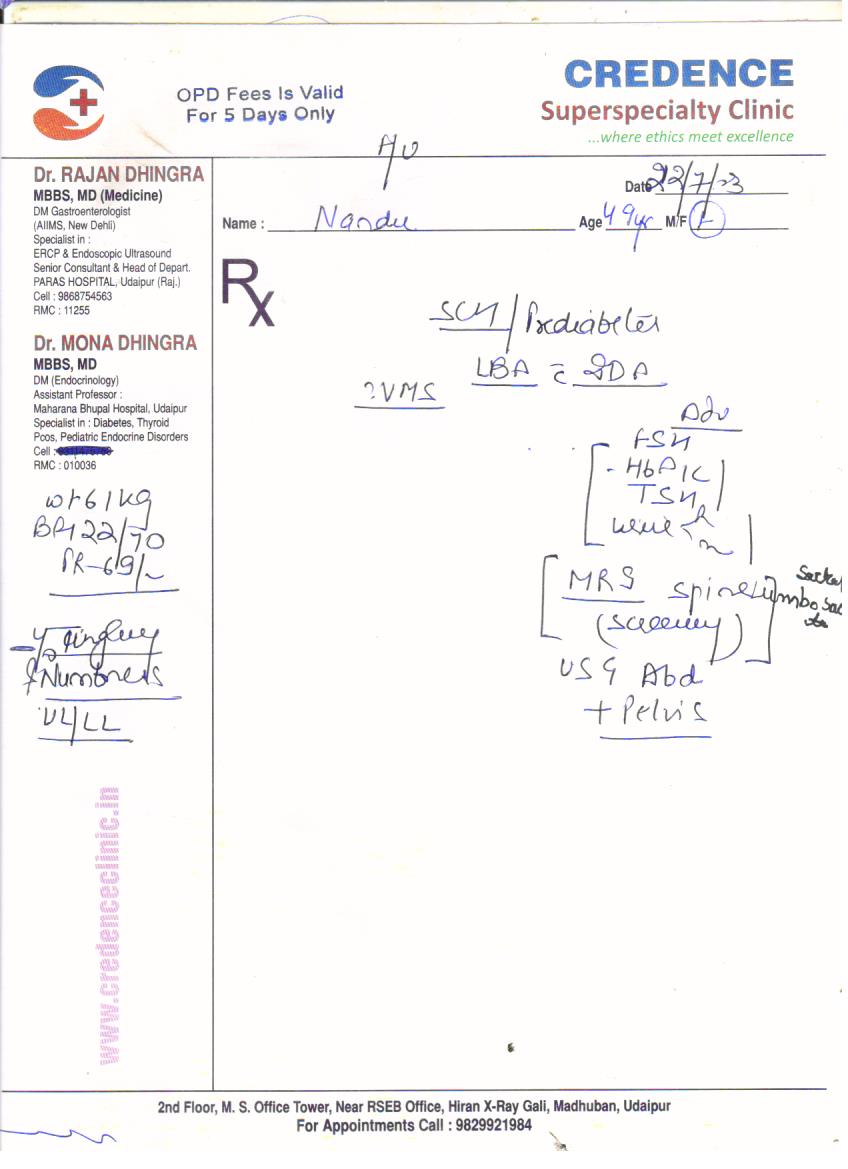 OPD Fees Is Valid
For 5 Days Only
CREDENCE
Superspecialty Clinic
...where ethics meet excellence
Dr. RAJAN DHINGRA
MBBS, MD (Medicine)
DM Gastroenterologist
(AIIMS, New Dehli)
Specialist in :
ERCP & Endoscopic Ultrasound
Senior Consultant & Head of Depart.
PARAS HOSPITAL, Udaipur (Raj.)
Cell : 9868754563
RMC : 11255
Dr. MONA DHINGRA
MBBS, MD
DM (Endocrinology)
Assistant Professor :
Maharana Bhupal Hospital, Udaipur
Specialist in : Diabetes, Thyroid
Pcos, Pediatric Endocrine Disorders
Cell :
RMC : 010036
wt 61 kg
BP 122/70
PR-69/
Tingling
Numbness
UL/LL
www.credenceclinic.in
Date 22/7/23
Name : Nandu Age 49yr M/F
Rx
SCH/Prediabetes
LBA c̄ IDA
?VMS
Adv
FSH
- HbA1C
TSH
Urine
MRS Spine Lumbo
(Screening)
USG Abd
+ Pelvis
2nd Floor, M. S. Office Tower, Near RSEB Office, Hiran X-Ray Gali, Madhuban, Udaipur
For Appointments Call : 9829921984